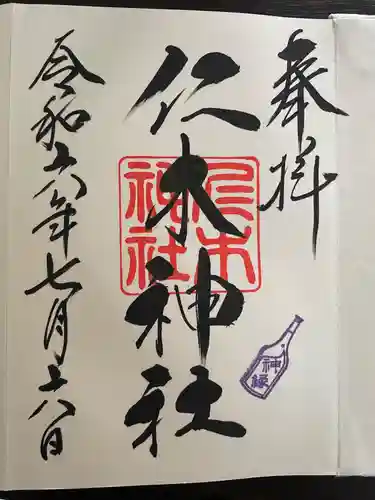 奉拝
仁木神社
仁木神社
神縁
令和六年七月六日